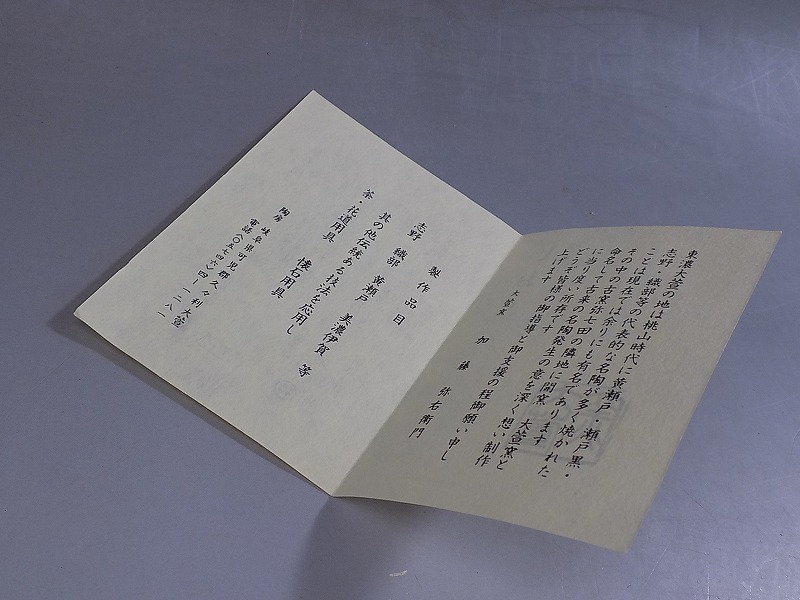 東濃大萱の地は桃山時代に黄瀬戸・瀬戸黒・
志野・織部等の代表的な名陶が多く焼かれた
ことは現在では余りにも有名であります
その中の古窯弥七田の隣地に開窯 大萱窯と
命名して古来の名陶発生の意を深く想い制作
に当り度い所存です
どうぞ皆様の御指導と御支援の程御願い申し
上げます
大萱窯
加藤 弥右衛門
製作品目
志野 織部 黄瀬戸 美濃伊賀 等
其の他伝統ある技法を応用し
茶・花道用具 懐石用具
陶房 岐阜県可児郡久々利大萱
電話(〇五七四六)四-一二八一